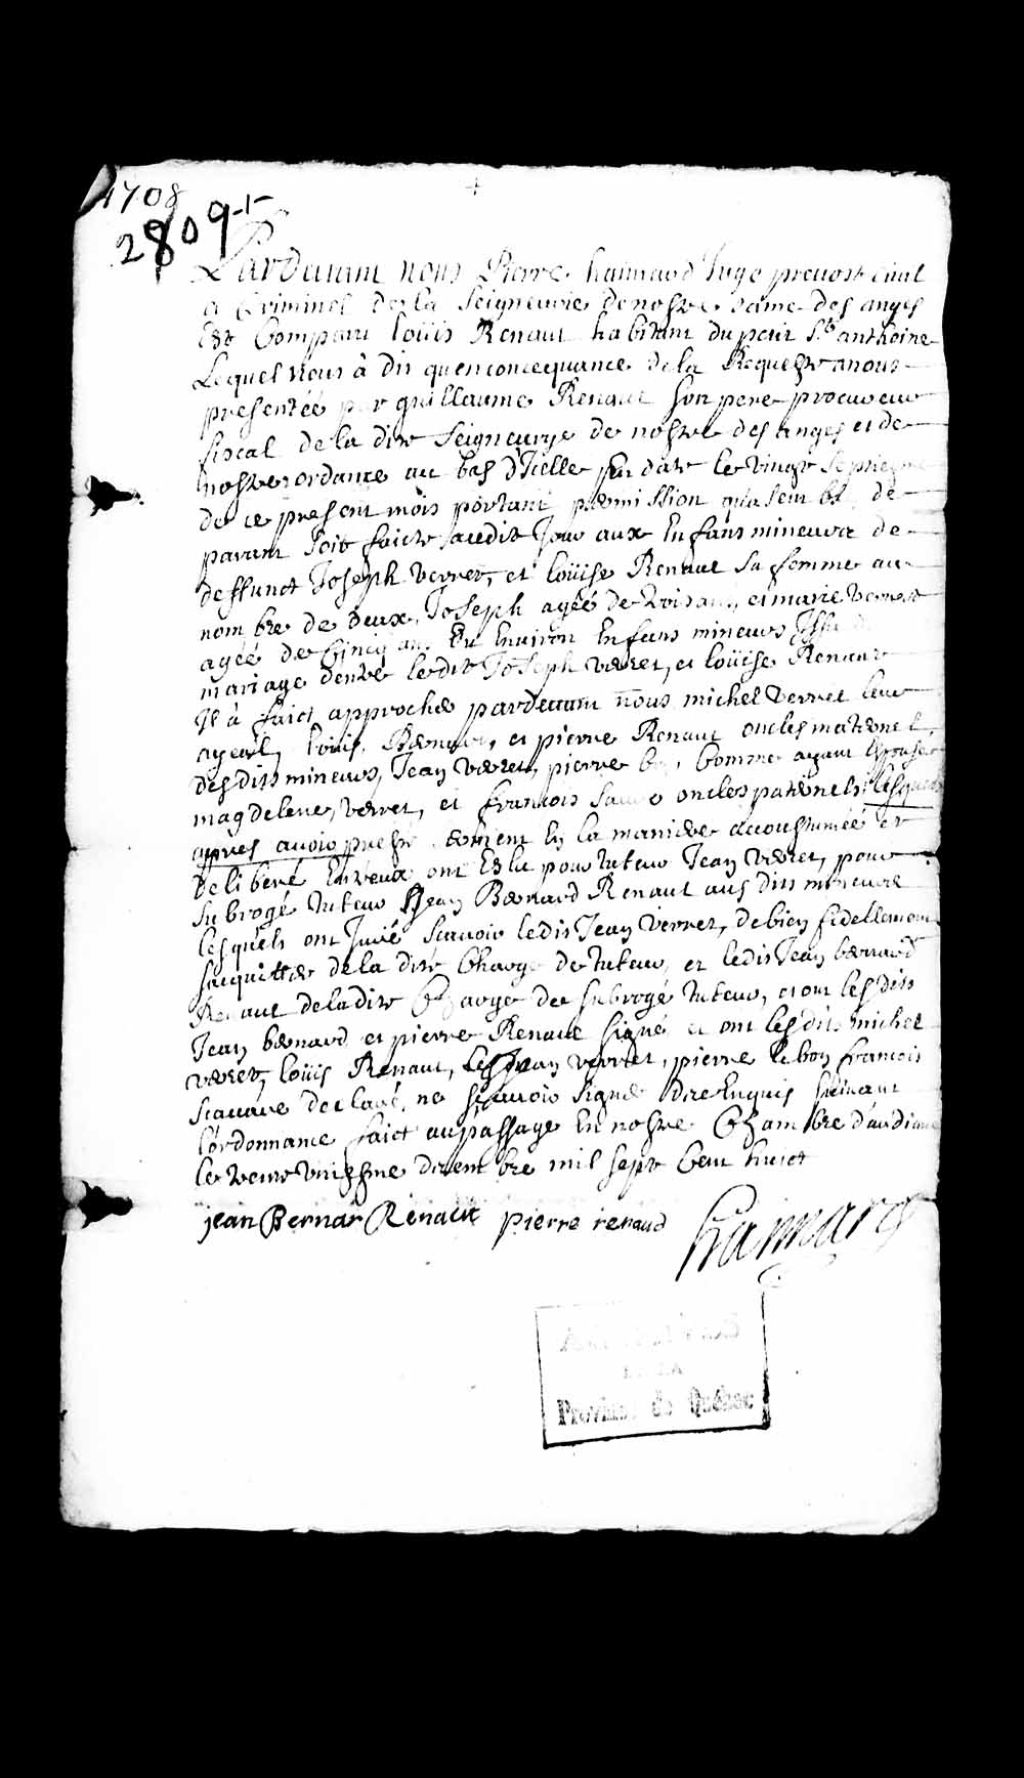 1708
2809-1-
Pardevant nous Pierre haimard Juge prevost civil
et Criminel de la Seigneurie de nostre dame des anges
Est Comparu loüis Renaut habitant du petit St anthoine
Lequel nous à dit qu'en concequance de la Requeste a nous
presentéé par guillaume Renaut son pere procureur
fiscal de la dite Seigneurye de nostre des anges et de
nostre ordance au bas d'Icelle en date le vingt septiesme
de ce present mois portant permission qu'assemblé de
parant soit faicte audit Jour aux Enfans mineurs de
deffunct Joseph Verret, et loüise Renaut sa femme au
nombre de deux, Joseph agéé de trois ans, et marie Verret
agéé de Cincq ans ou Environ Enfans mineurs Issu du
mariage dentre ledit Joseph Verret, et loüise Renaut
Il à faict approcher pardevant nous michel Verret leur
ayeul, loüis Renaut, et pierre Renaut oncles maternel,
desdits mineurs, Jean Verret, pierre bon, Comme ayant Epousé
magdelene, Verret, et francois oncles paternels lesquels
apres avoir preste serment En la maniere accoustumée et
deliberé Entreux ont Eslu pour tuteur Jean Verret, pour
Subrogé tuteur Jean Bernard Renaut aus dits mineurs
lesquels ont Juré scavoir ledit Jean Verret, de bien fidellement
sacquitter de la dite Charge de tuteur, et ledit Jean bernard
Renaut de la dite Charge de subrogé tuteur, et ont lesdits
Jean bernard et pierre Renaut signé et ont lesdits michel
verret, loüis Renaut, Jean verret, pierre le bon francois
declaré ne scavoir signer dire Enquis suivant
l'ordonnance faict au passage En nostre Chambre d'audiance
le trente uniesme decembre mil sept Cent huict
jean Bernar Renault pierre renaud haimard
Province de Québec